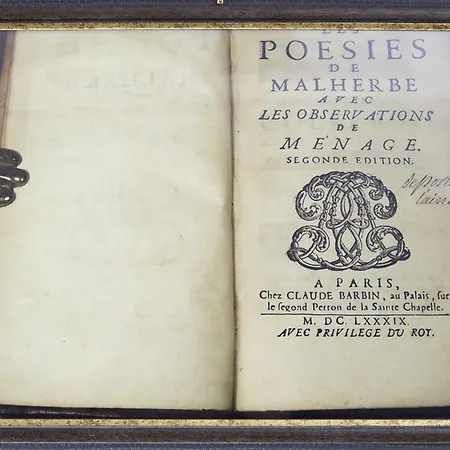 LES
POESIES
DE
MALHERBE
AVEC
LES OBSERVATIONS
DE
MÉNAGE.
SEGONDE EDITION.
A PARIS,
Chez CLAUDE BARBIN, au Palais, sur
le segond Perron de la Sainte Chapelle.
M. DC. LXXXIX.
AVEC PRIVILEGE DU ROY.